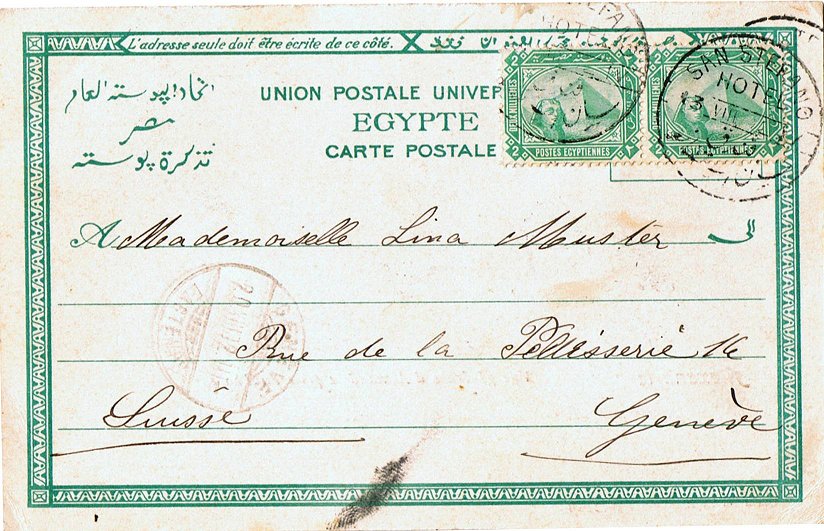 L'adresse seule doit être écrite de ce côté.
اتحاد البوسته العام
مصر
تذكرة بوسته
UNION POSTALE UNIVER
EGYPTE
CARTE POSTALE
2 2
DEUX MILLIEMES
POSTES EGYPTIENNES
2 ٢
2
MILLIEMES
POSTAS EGYPTIENNES
2
HOTEL
SAN STEFANO
HOTEL
13 VIII
A Mademoiselle Lina Muster الى
Rue de la Pellisserie 16
Suisse Genève